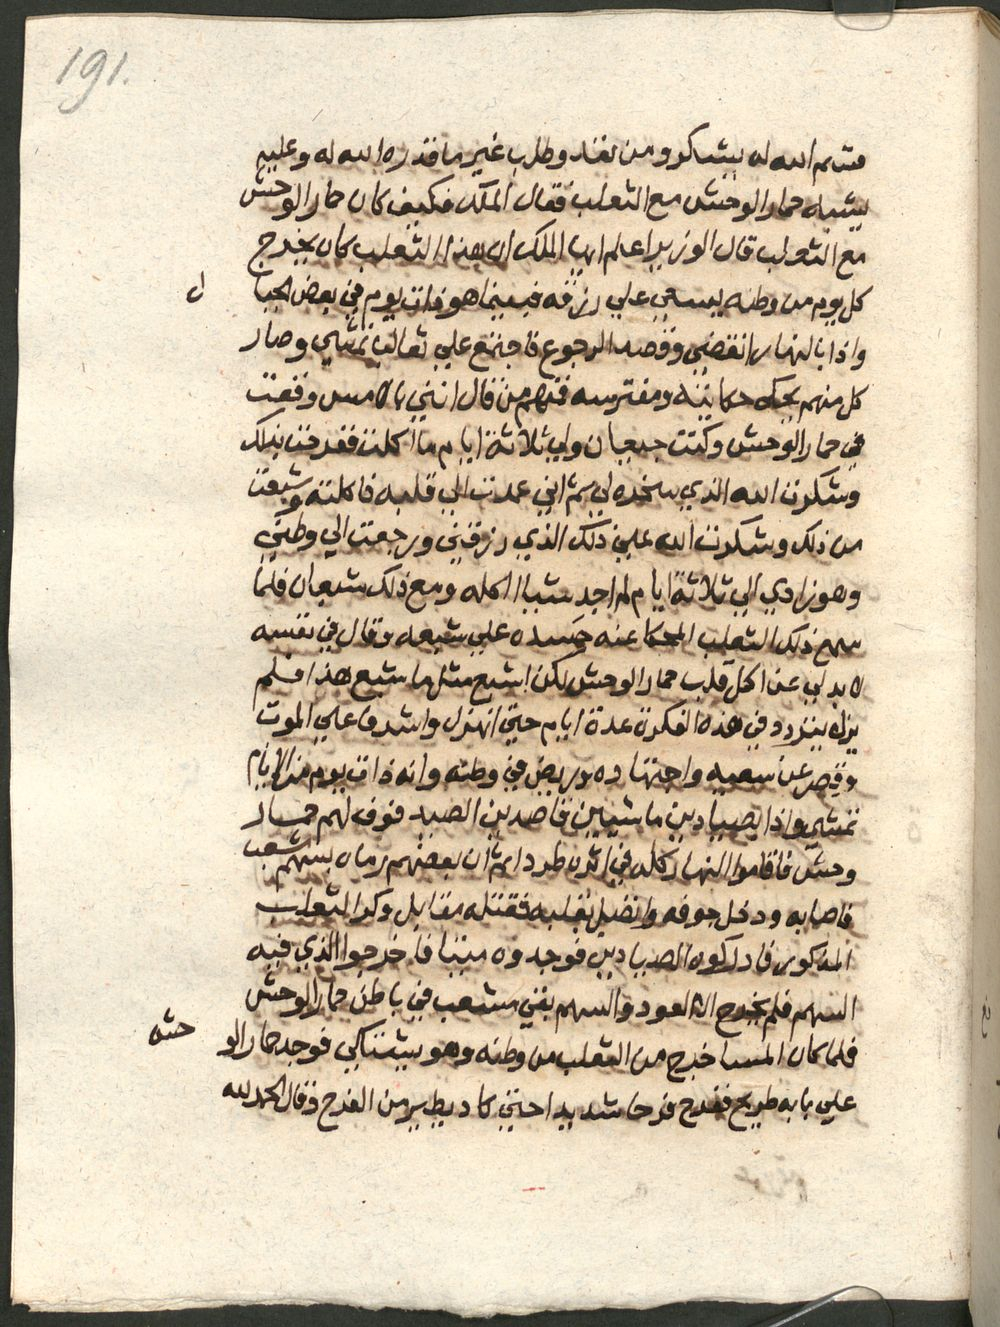 191.
قسم الله له بيشكرو ومن نفند وطلب غير ما قدره الله له وعليه
يشبه حمار الوحش مع الثعلب فقال الملك فكيف كان حمار الوحش
مع الثعلب قال الوزير اعلم ايها الملك ان هذا الثعلب كان يخرج
كل يوم من وطنه يسعي علي رزقه فبينما هو ذات يوم في بعض الجبا
ل
واذا بالنهار انقضي وقصد الرجوع فاجتمع علي ثعالب تمشي وصار
كل منهم يحكه حكايته ومفترسه فمنهم من قال انني بالامس وقعت
في حمار الوحش وكنت جيعان ولي ثلاثة ايام ما اكلت ففرحت بذلك
وشكرت الله الذي سخره لي ثم اني عمدت الي قلبه فاكلته وشبعت
من ذلك وشكرت الله علي ذلك الذي رزقني ورجعت الي وطني
وهو زادي الي ثلاثة ايام لم اجد شيا اكله ومع ذلك شبعان فلما
سمع ذلك الثعلب المحكا عنه حسده علي شبعه وقال في نفسه
لا بد لي عن اكل قلب حمار الوحش لكن اشبع مثل ما شبع هذا فلم
يزل يتردد في هذه الفكرة عدة ايام حتي انهزل واشرف علي الموت
وقصر عن سعيه واجتهاده وربض في وطنه وانه ذات يوم من الايام
تمشي واذا بصيادين ماشيين قاصدين الصيد فوف لهم حمار
وحش فاقاموا النهار كله في اثره طردا ثم ان بعضهم رماه بسهم مشعب
فاصابه ودخل جوفه واتصل بقلبه فقتله مقابل وكر الثعلب
المذكور فادركوه الصيادين فوجدوه ميتا فاخرجوا الذي فيه
السهم فلم يخرج الا العود والسهم بقي مشعب في باطن حمار الوحش
فلما كان المسا خرج من الثعلب من وطنه وهو يشتكي فوجد حمار الو
حش
علي بابه طريح ففرح فرحا شديدا حتي كاد يطير من الفرح وقال الحمد لله